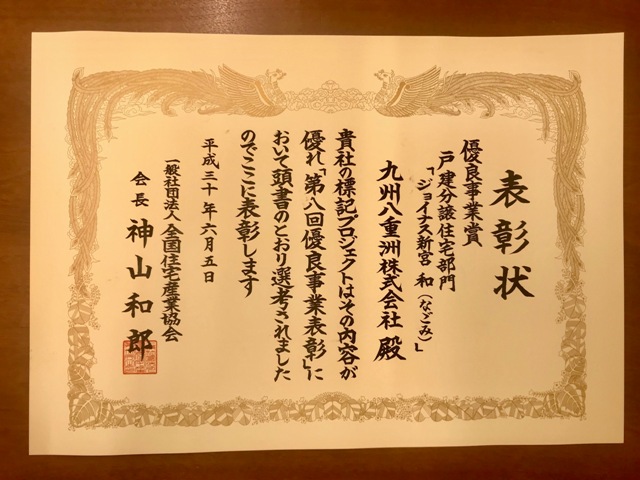 表彰状
優良事業賞
戸建分譲住宅部門
「ジョイナス新宮 和(なごみ)」
九州八重洲株式会社 殿
貴社の標記プロジェクトはその内容が
優れ「第八回優良事業表彰」に
おいて頭書のとおり選考されました
のでここに表彰します
平成三十年六月五日
一般社団法人全国住宅産業協会
会長 神山和郎